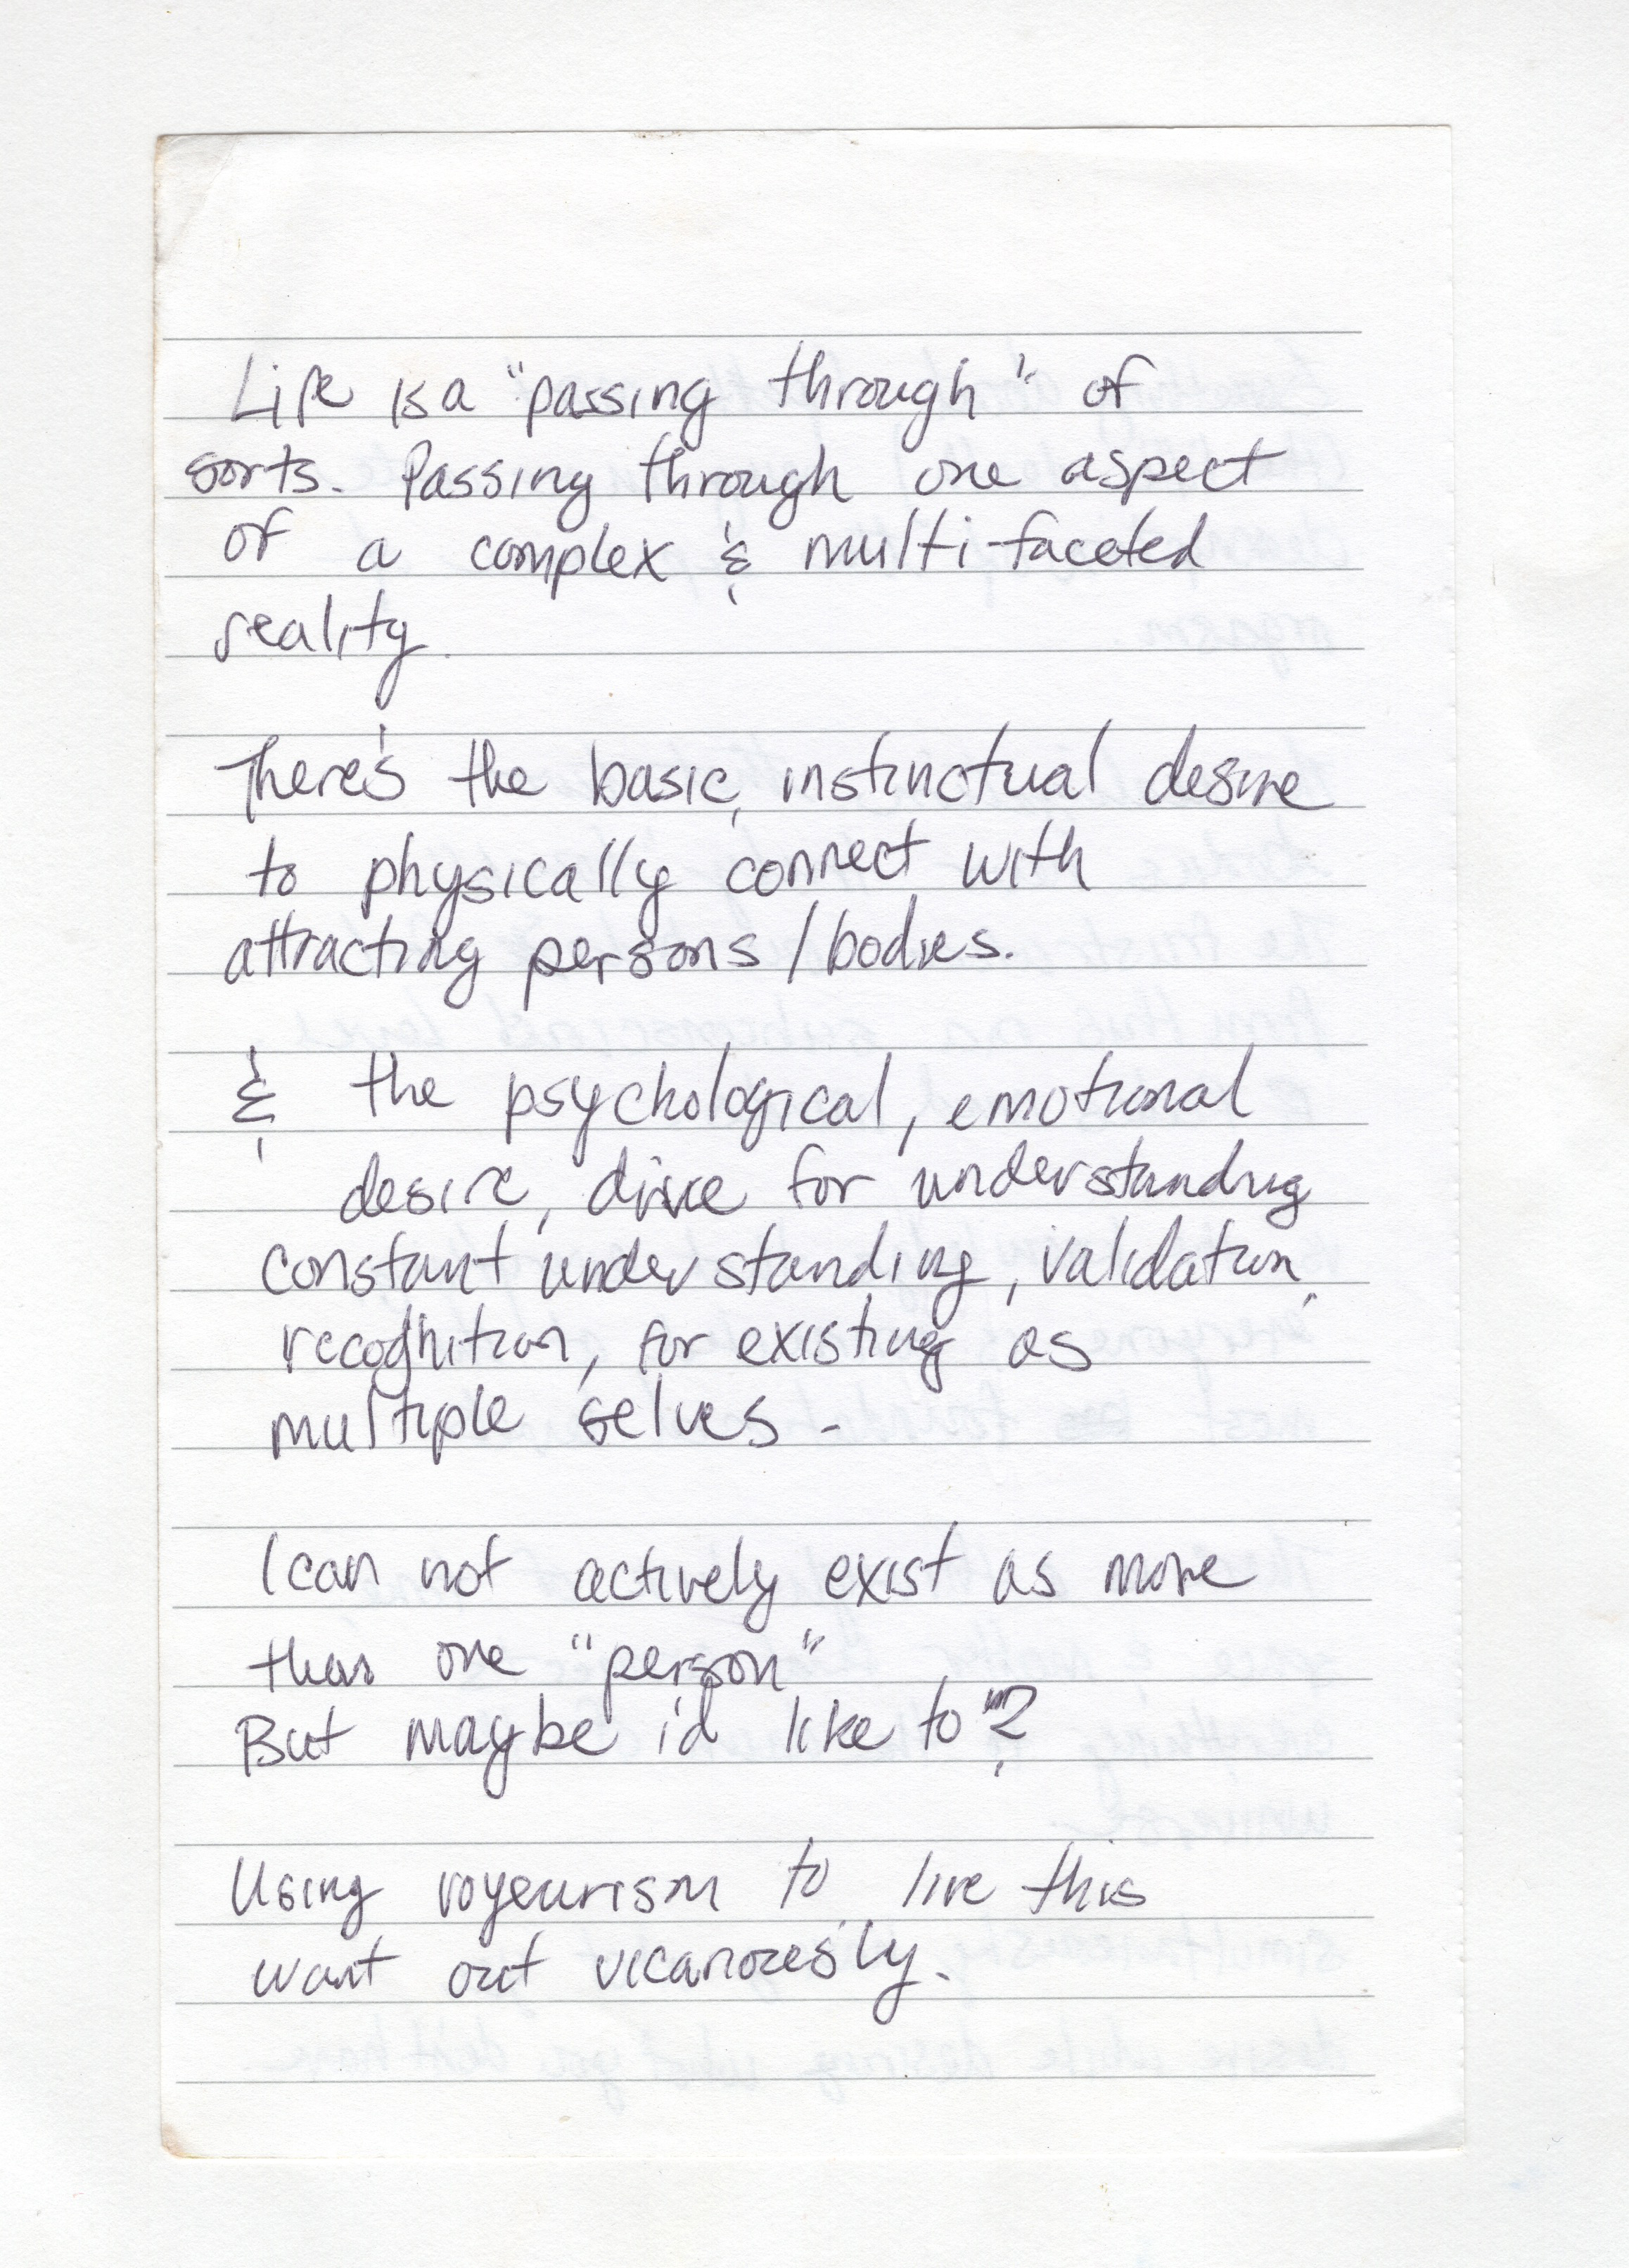 Life is a "passing through" of
sorts. Passing through one aspect
of a complex & multi-faceted
reality.
There's the basic, instinctual desire
to physically connect with
attracting persons / bodies.
& the psychological, emotional
desire, drive for understanding
constant understanding, validation,
recognition, for existing as
multiple selves -
I can not actively exist as more
than one "person"
But maybe i'd like to?
Using voyeurism to live this
want out vicariously.